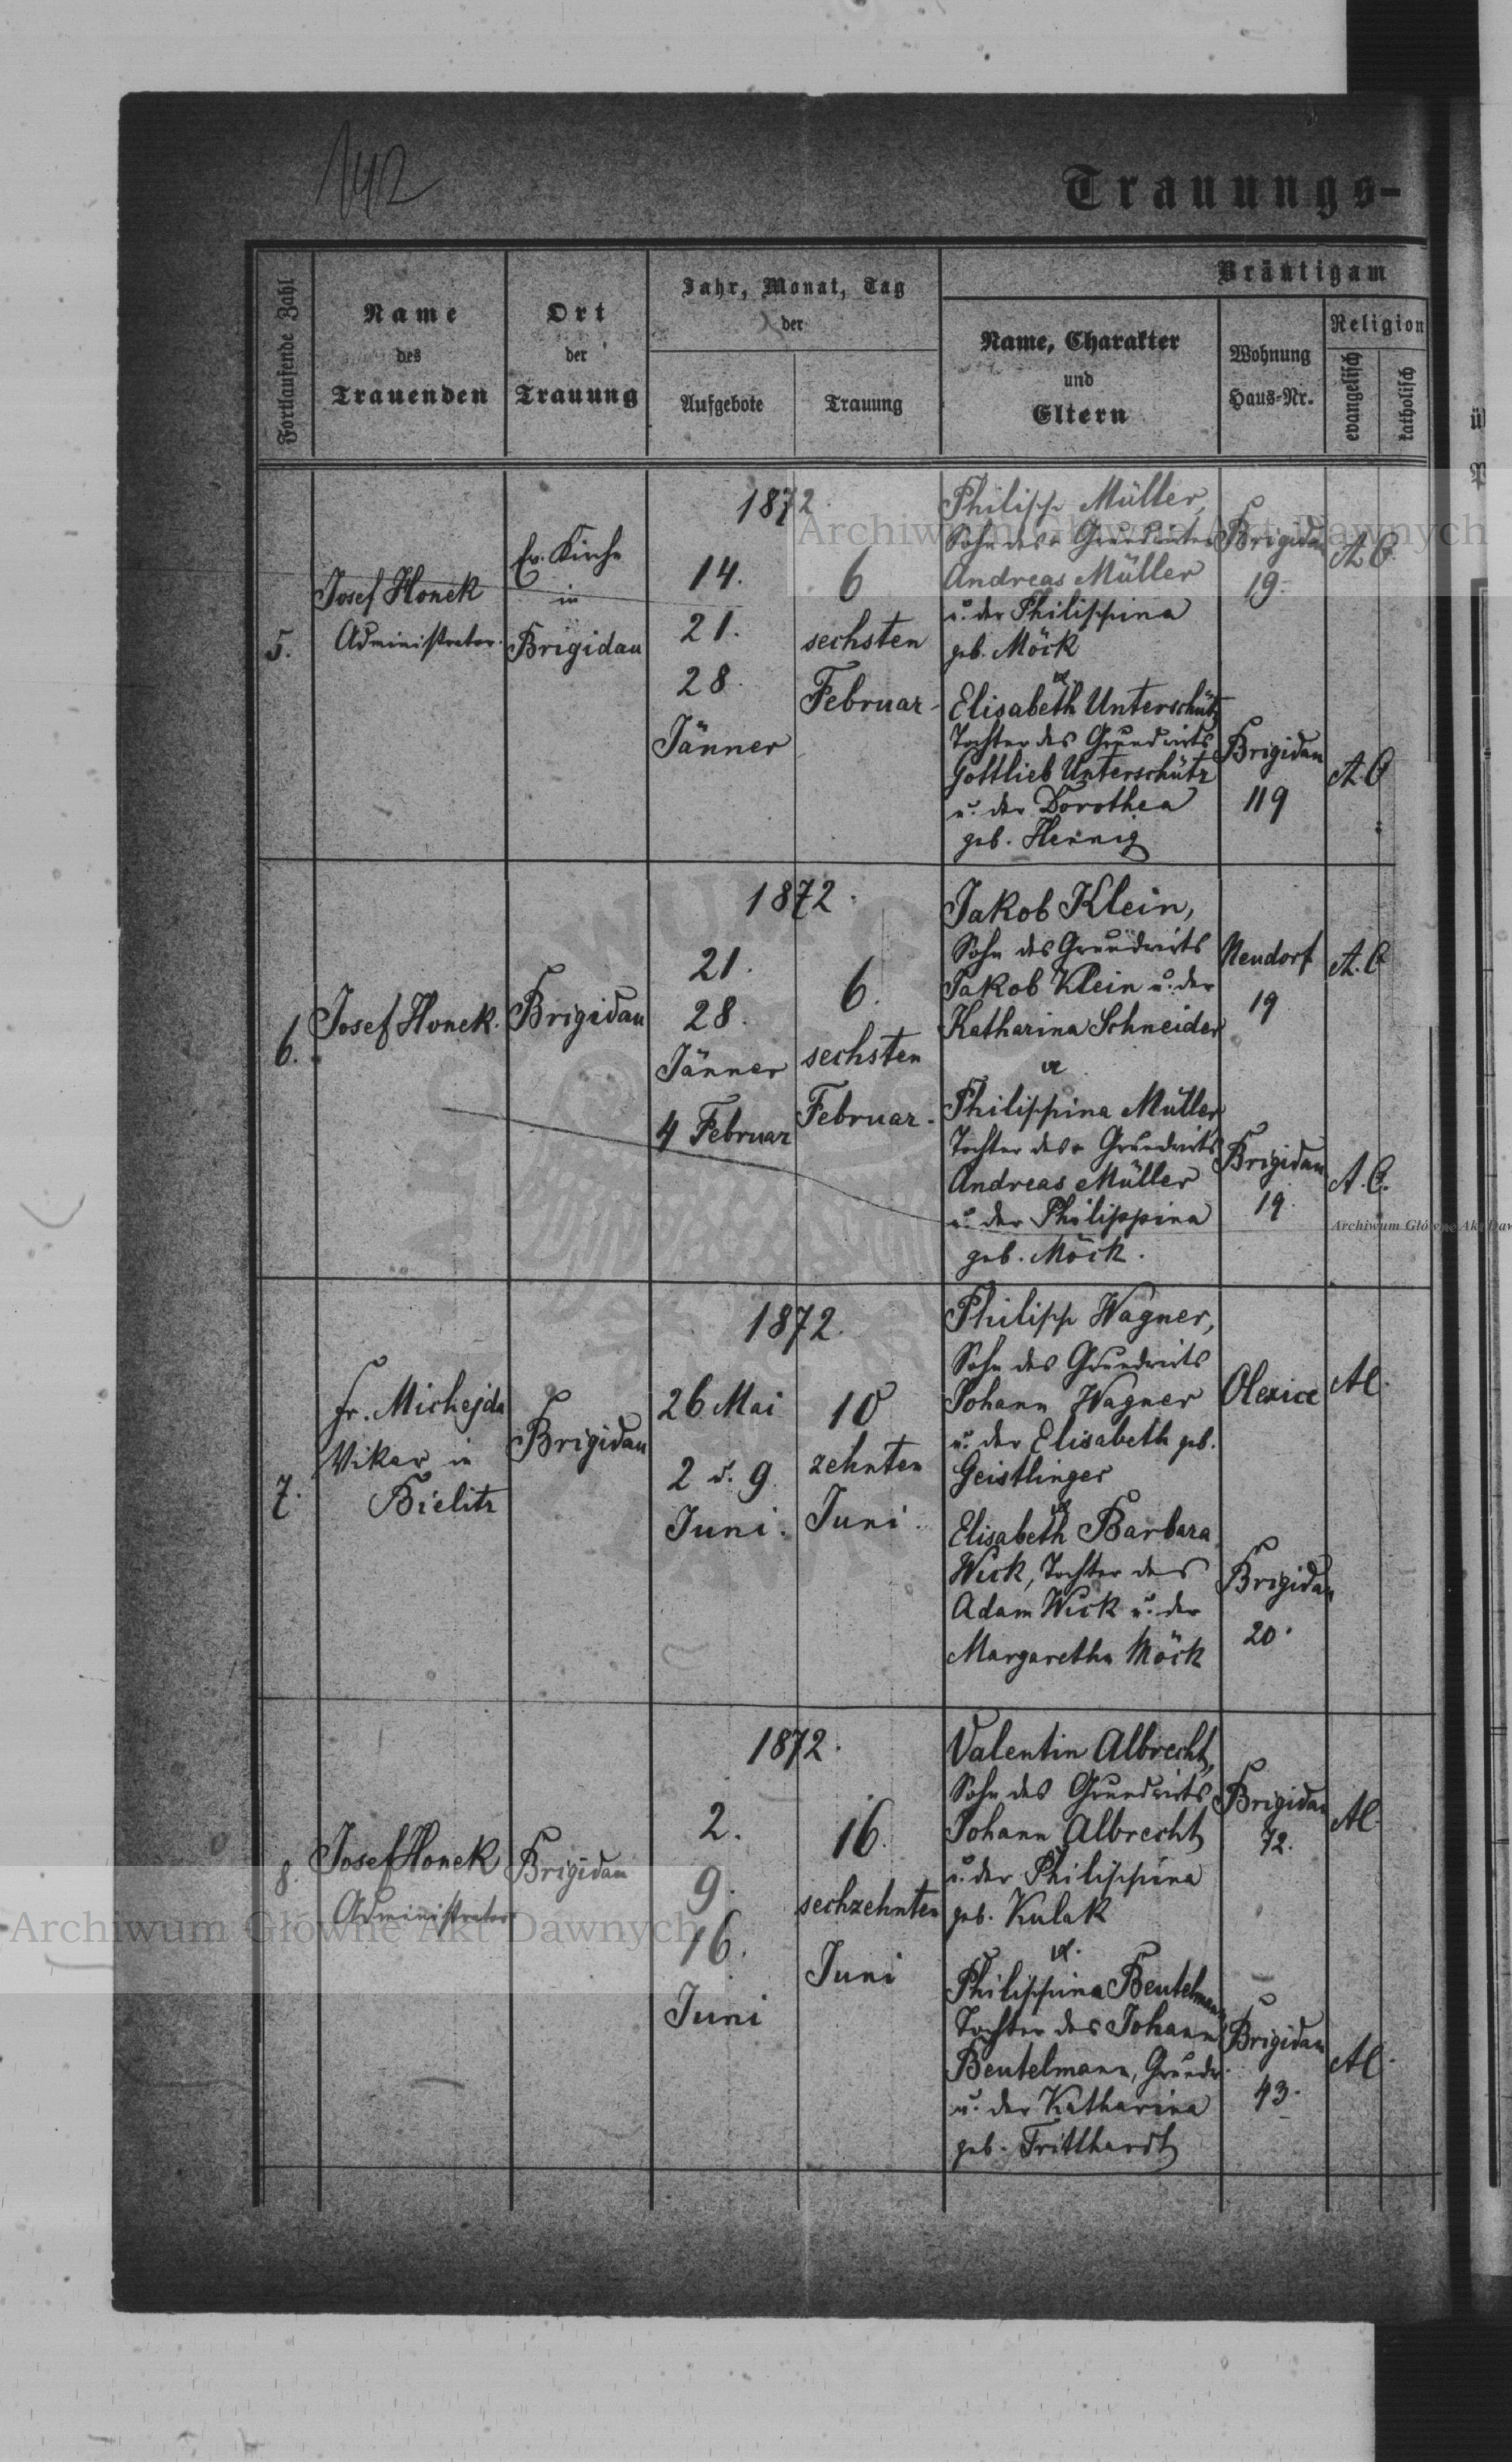 142
Trauungs-
Fortlaufende Zahl
Name
des
Trauenden
Ort
der
Trauung
Jahr, Monat, Tag
der
Aufgebote
Trauung
Bräutigam
Name, Charakter
und
Eltern
Wohnung
Haus-Nr.
Religion
evangelisch
katholisch
5.
Josef Honek
Administrator.
Ev. Kirche
in
Brigidau
1872.
14.
21.
28.
Jänner
6
sechsten
Februar
Philipp Müller,
Sohn des Grundwirts
Andreas Müller
u. der Philippina
geb. Möck
u.
Elisabeth Unterschütz
Tochter des Grundwirts
Gottlieb Unterschütz
u. der Dorothea
geb. Hennig
Brigidau
19.
Brigidau
119
A. C.
A. C
6.
Josef Honek.
Brigidau
1872.
21.
28.
Jänner
4 Februar
6.
sechsten
Februar.
Jakob Klein,
Sohn des Grundwirts
Jakob Klein u. der
Katharina Schneider
u.
Philippina Müller
Tochter des Grundwirts
Andreas Müller
u. der Philippina
geb. Möck.
Neudorf
19
Brigidau
19.
A. C
A. C.
7.
Fr. Michejda
Vikar in
Bielitz
Brigidau
1872.
26 Mai
2 u. 9.
Juni.
10
zehnten
Juni.
Philipp Wagner,
Sohn des Grundwirts
Johann Wagner
u. der Elisabeth geb.
Geistlinger
u.
Elisabeth Barbara
Wick, Tochter des
Adam Wick u. der
Margaretha Möck
Olexice
Brigidau
20.
AC.
8.
Josef Honek
Administrator
Brigidau
1872.
2.
9.
16.
Juni
16.
sechzehnten
Juni
Valentin Albrecht,
Sohn des Grundwirts
Johann Albrecht
u. der Philippina
geb. Kulak
u.
Philippina Beutelmann
Tochter des Johann
Beutelmann, Grundw.
u. der Katharina
geb. Tritthardt
Brigidau
72.
Brigidau
43.
AC.
AC.
Archiwum Główne Akt Dawnych
Archiwum Główne Akt Daw
Archiwum Główne Akt Dawnych